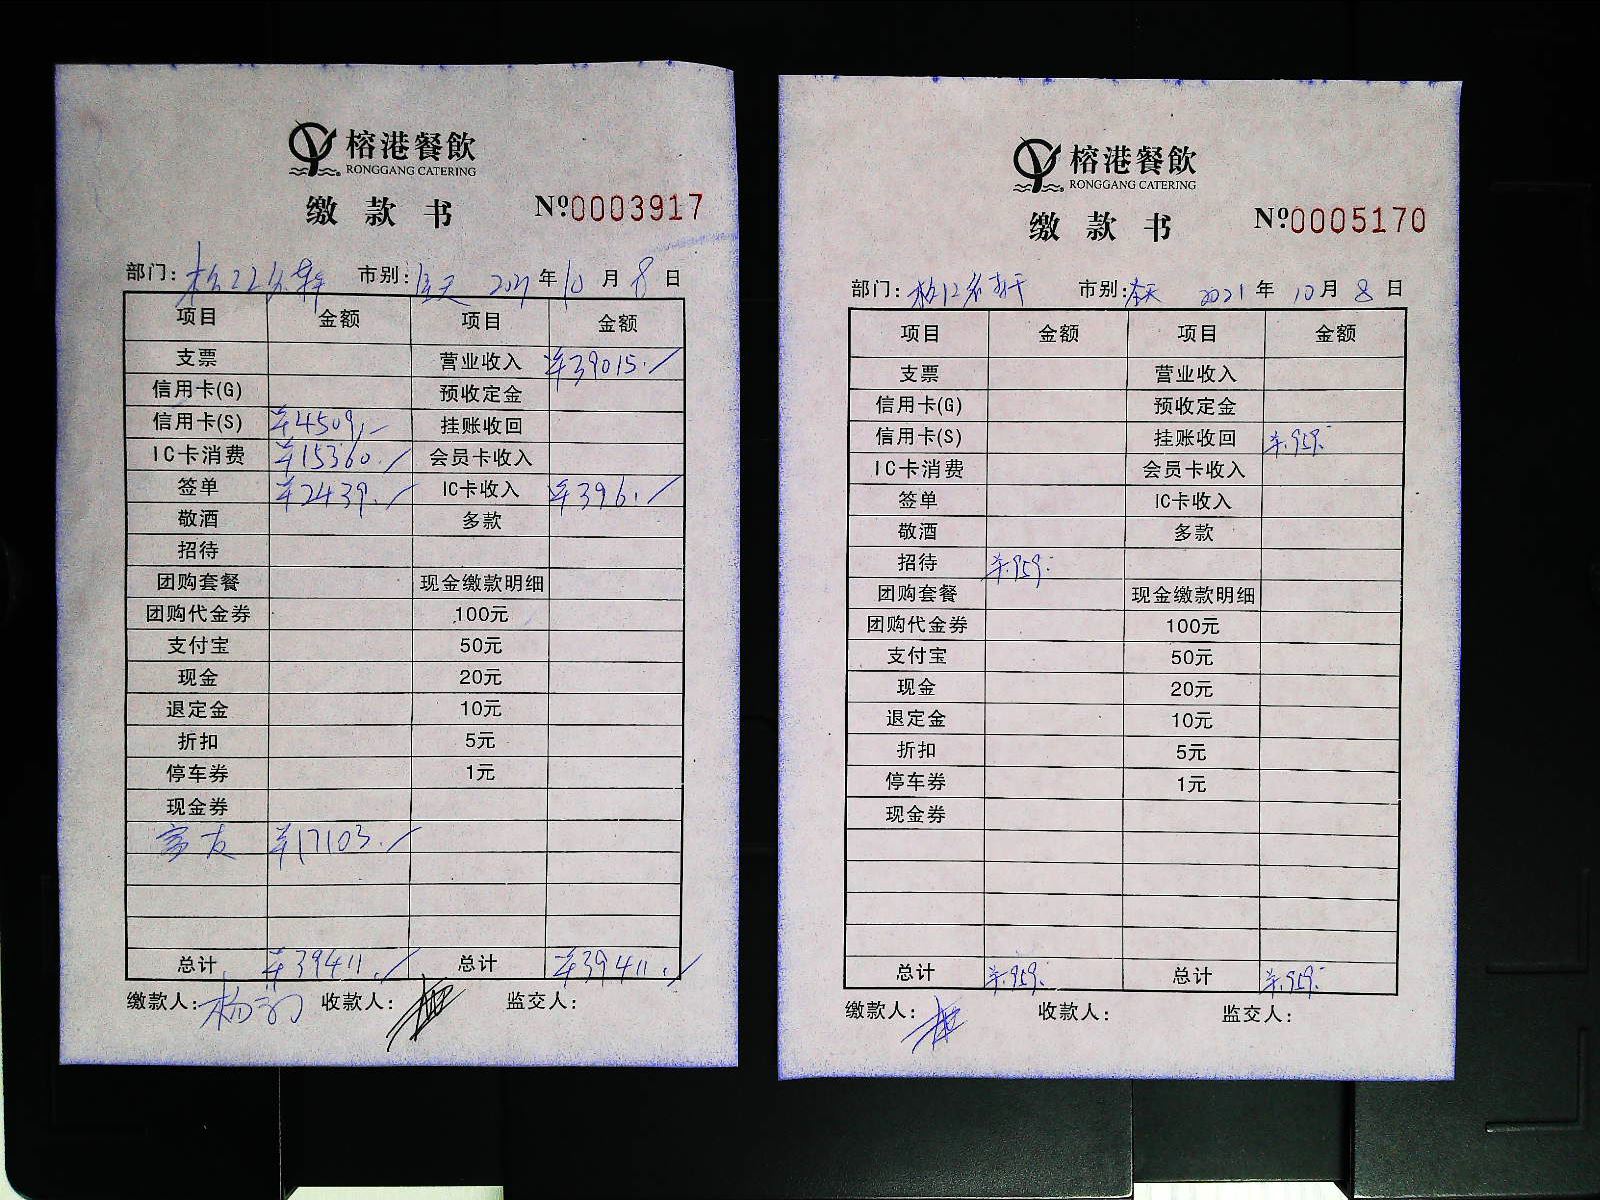 榕港餐飲
RONGGANG CATERING
缴款书 №0003917
部门: 市别:全天 2021年10月8日
项目 金额 项目 金额
支票 营业收入 ¥39015.
信用卡(G) 预收定金
信用卡(S) ¥4509. 挂账收回
IC卡消费 ¥15360. 会员卡收入
签单 ¥2439. IC卡收入 ¥396.
敬酒 多款
招待
团购套餐 现金缴款明细
团购代金券 100元
支付宝 50元
现金 20元
退定金 10元
折扣 5元
停车券 1元
现金券
富友 ¥17103.
总计 ¥39411. 总计 ¥39411.
缴款人: 收款人: 监交人:
榕港餐飲
RONGGANG CATERING
缴款书 №0005170
部门: 市别:全天 2021年10月8日
项目 金额 项目 金额
支票 营业收入
信用卡(G) 预收定金
信用卡(S) 挂账收回 ¥959.
IC卡消费 会员卡收入
签单 IC卡收入
敬酒 多款
招待 ¥959.
团购套餐 现金缴款明细
团购代金券 100元
支付宝 50元
现金 20元
退定金 10元
折扣 5元
停车券 1元
现金券
总计 ¥959. 总计 ¥959.
缴款人: 收款人: 监交人: